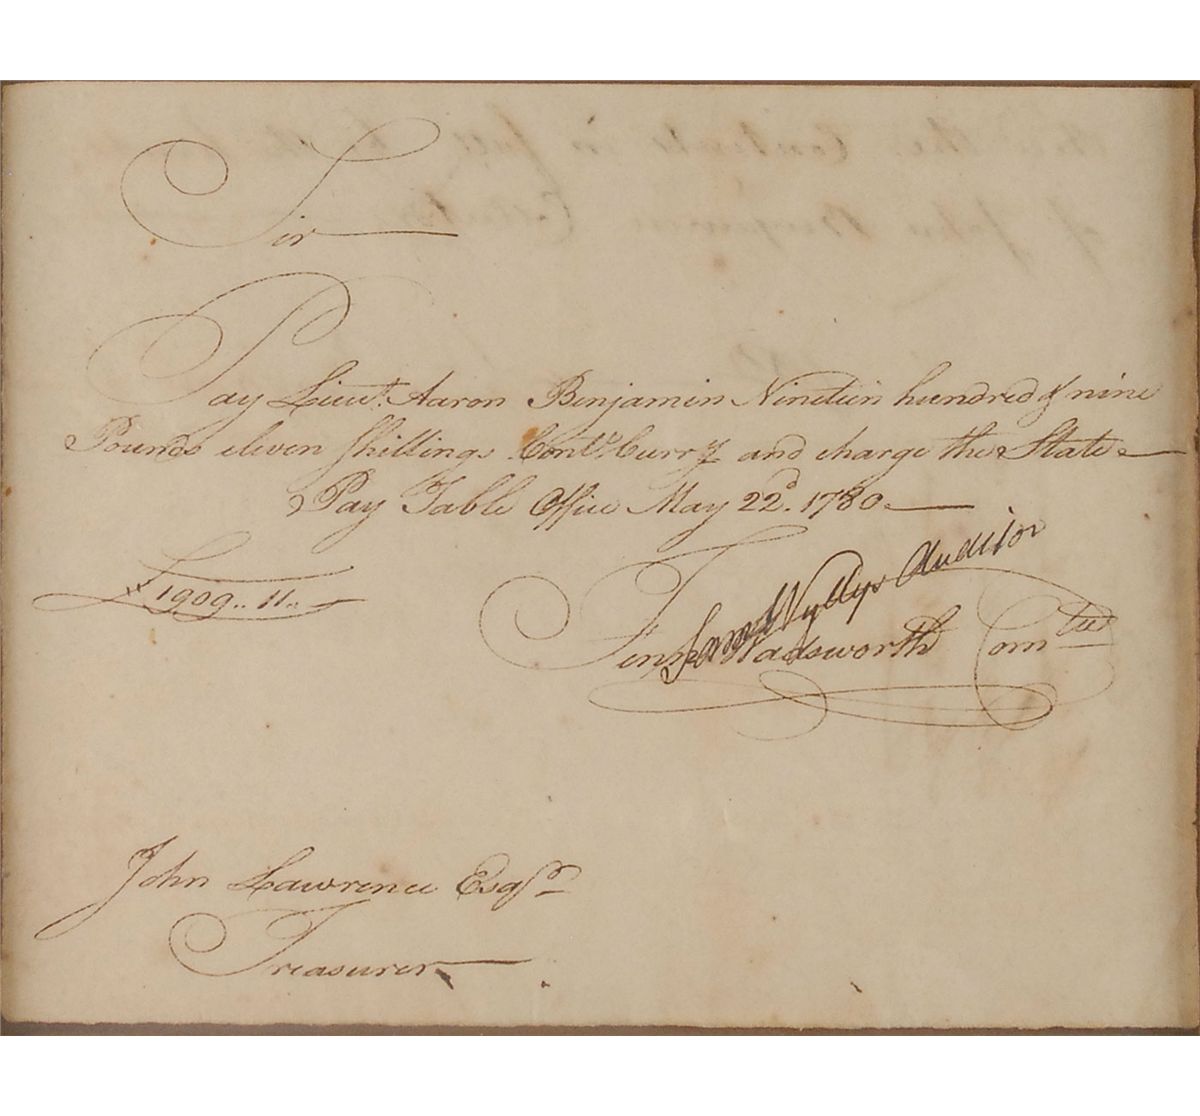 Sir
Pay Lieut. Aaron Benjamin Nineteen hundred & nine
Pounds eleven Shillings Cont.l Curry and charge the State
Pay Table Office May 22d. 1780.
£1909.. 11..
Saml Wyllys Auditor
Fenn Wadsworth Comtee
John Lawrence Esqr.
Treasurer